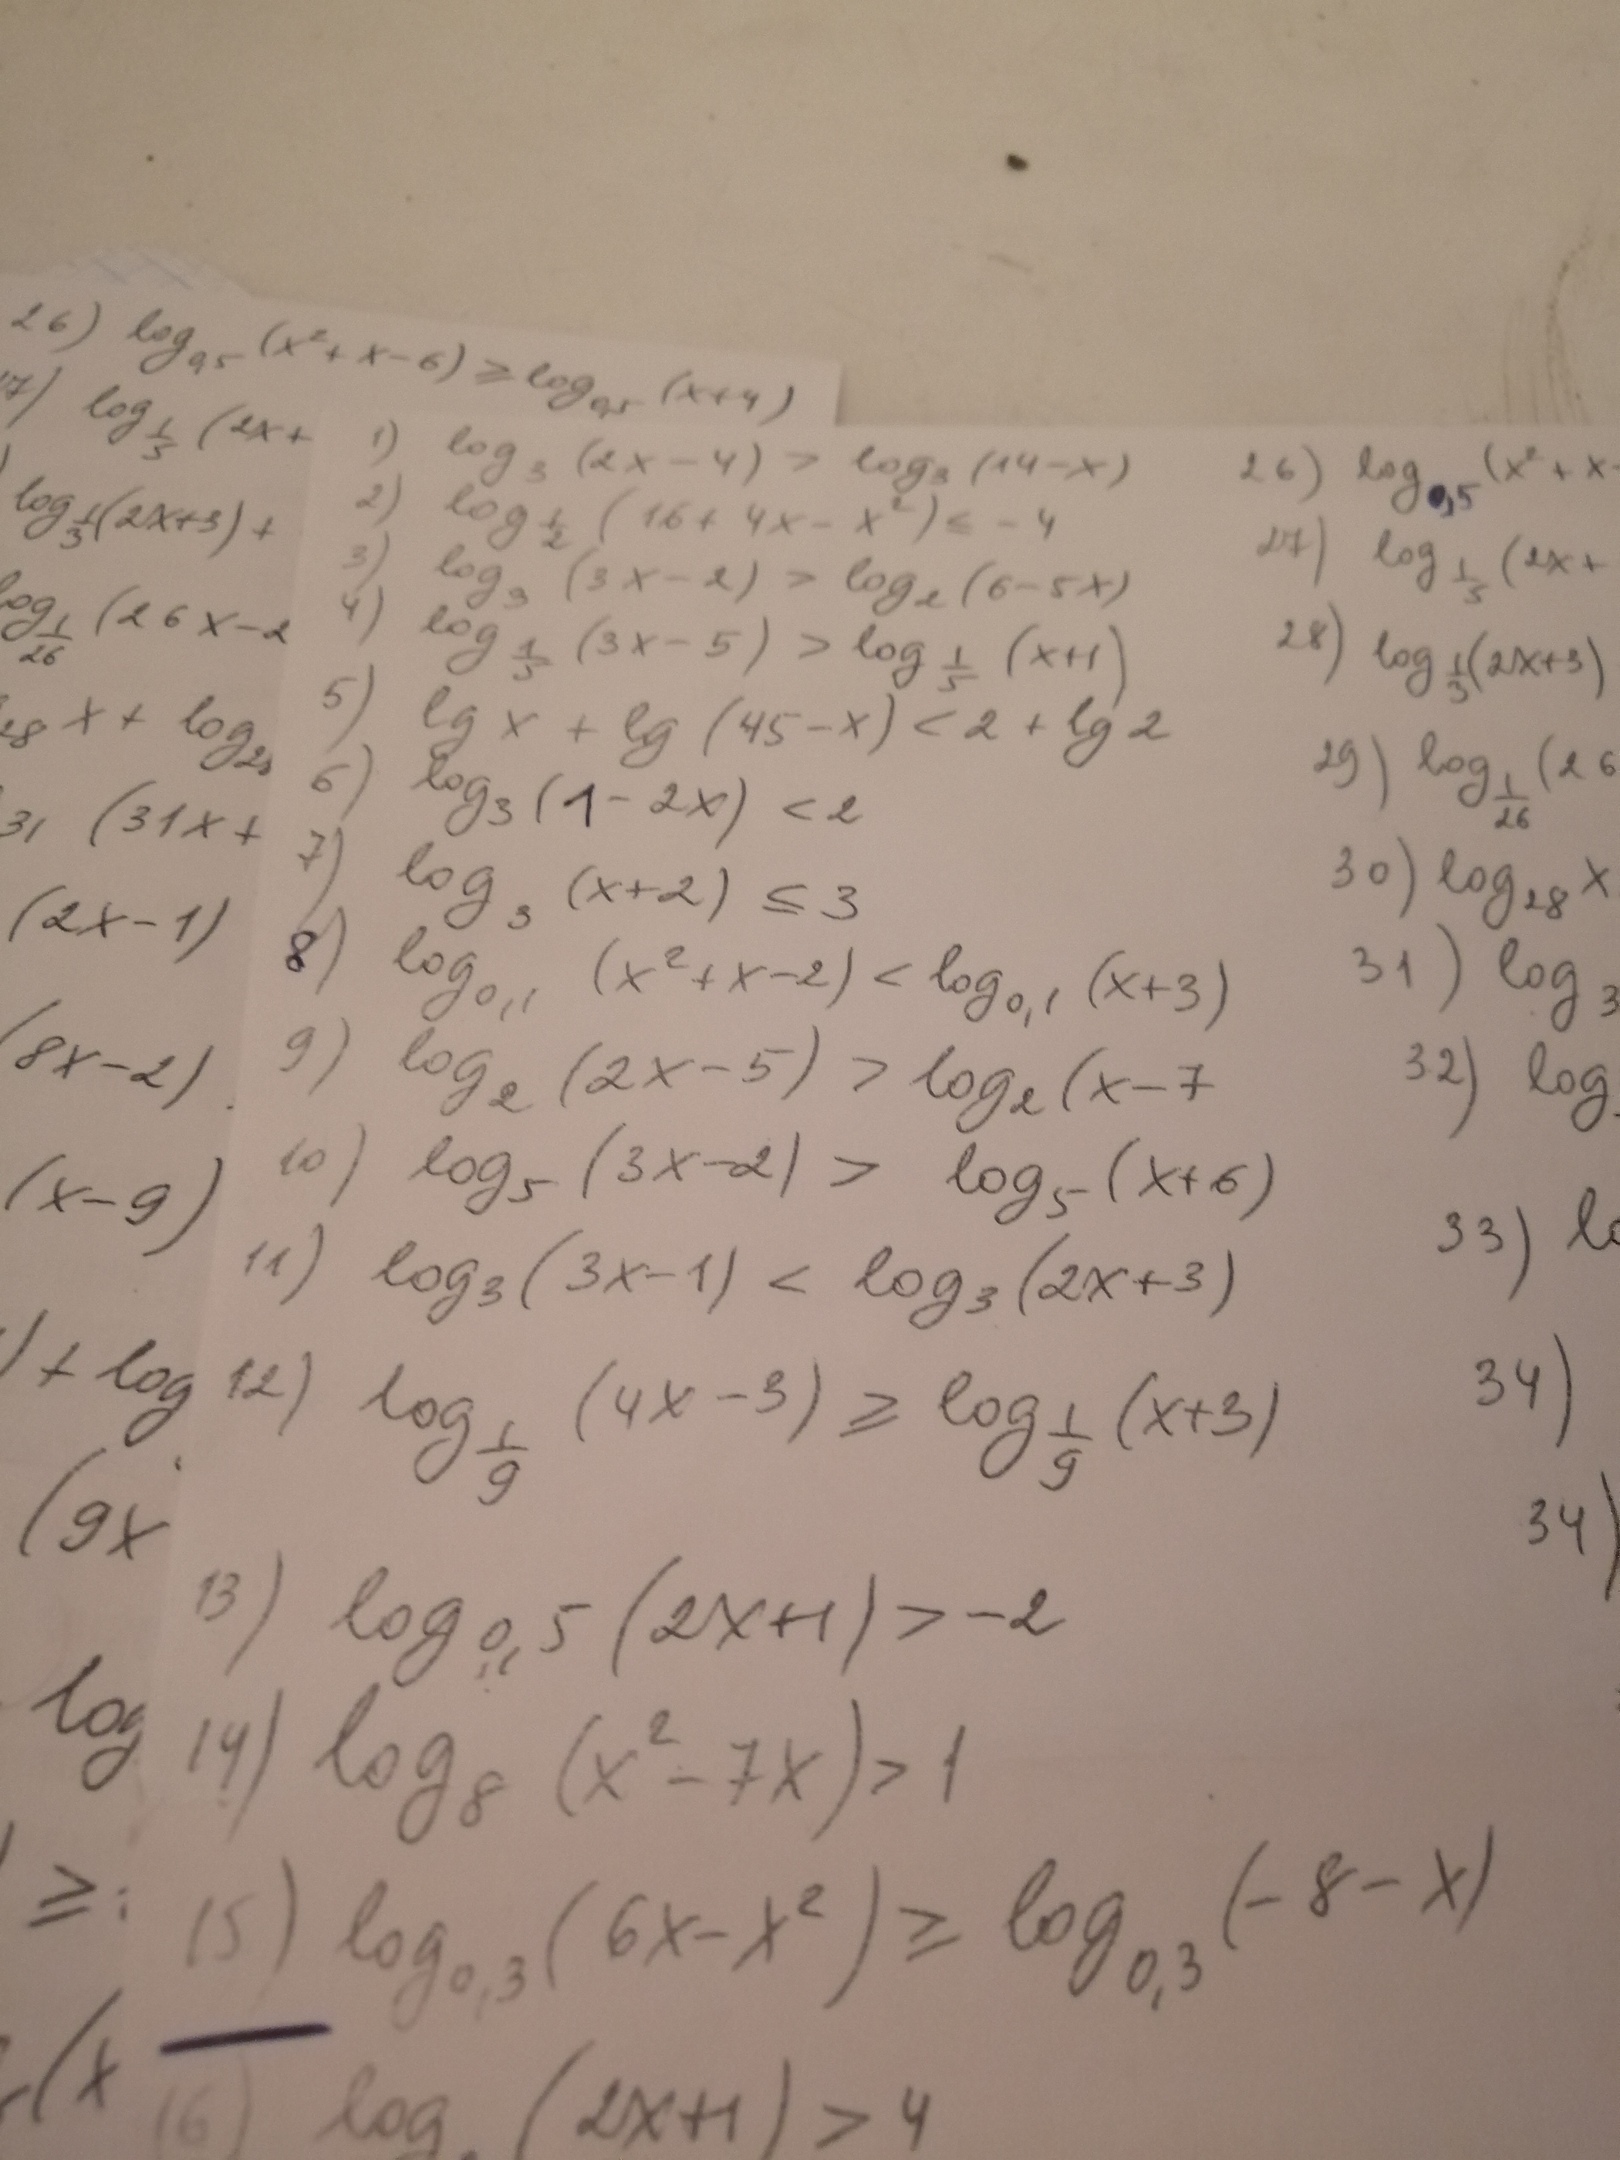 26) log₀,₅ (x² + x - 6) ≥ log₀,₅ (x+4)
27) log_1/5 (2x +
log_1/3 (2x+3) +
log_1/26 (26x - 2
28 x + log₂₈
31 (31x +
(2x - 1)
(8x - 2)
(x - 9)
) + log
(9x
log
) ≥
(x
1) log₃ (2x - 4) > log₃ (14 - x)
2) log_1/2 (16 + 4x - x²) ≤ -4
3) log₃ (3x - 2) > log₂ (6 - 5x)
4) log_1/5 (3x - 5) > log_1/5 (x+1)
5) lg x + lg (45 - x) < 2 + lg 2
6) log₃ (1 - 2x) < 2
7) log₃ (x+2) ≤ 3
8) log₀,₁ (x² + x - 2) < log₀,₁ (x+3)
9) log₂ (2x - 5) > log₂ (x - 7
10) log₅ (3x - 2) > log₅ (x+6)
11) log₃ (3x - 1) < log₃ (2x+3)
12) log_1/9 (4x - 3) ≥ log_1/9 (x+3)
13) log₀,₅ (2x+1) > -2
14) log₈ (x² - 7x) > 1
15) log₀,₃ (6x - x²) ≥ log₀,₃ (-8 - x)
16) log (2x+1) > 4
26) log₀,₅ (x² + x -
27) log_1/5 (2x +
28) log_1/3 (2x+3)
29) log_1/26 (26
30) log₂₈ x
31) log₃
32) log
33) lo
34)
34)